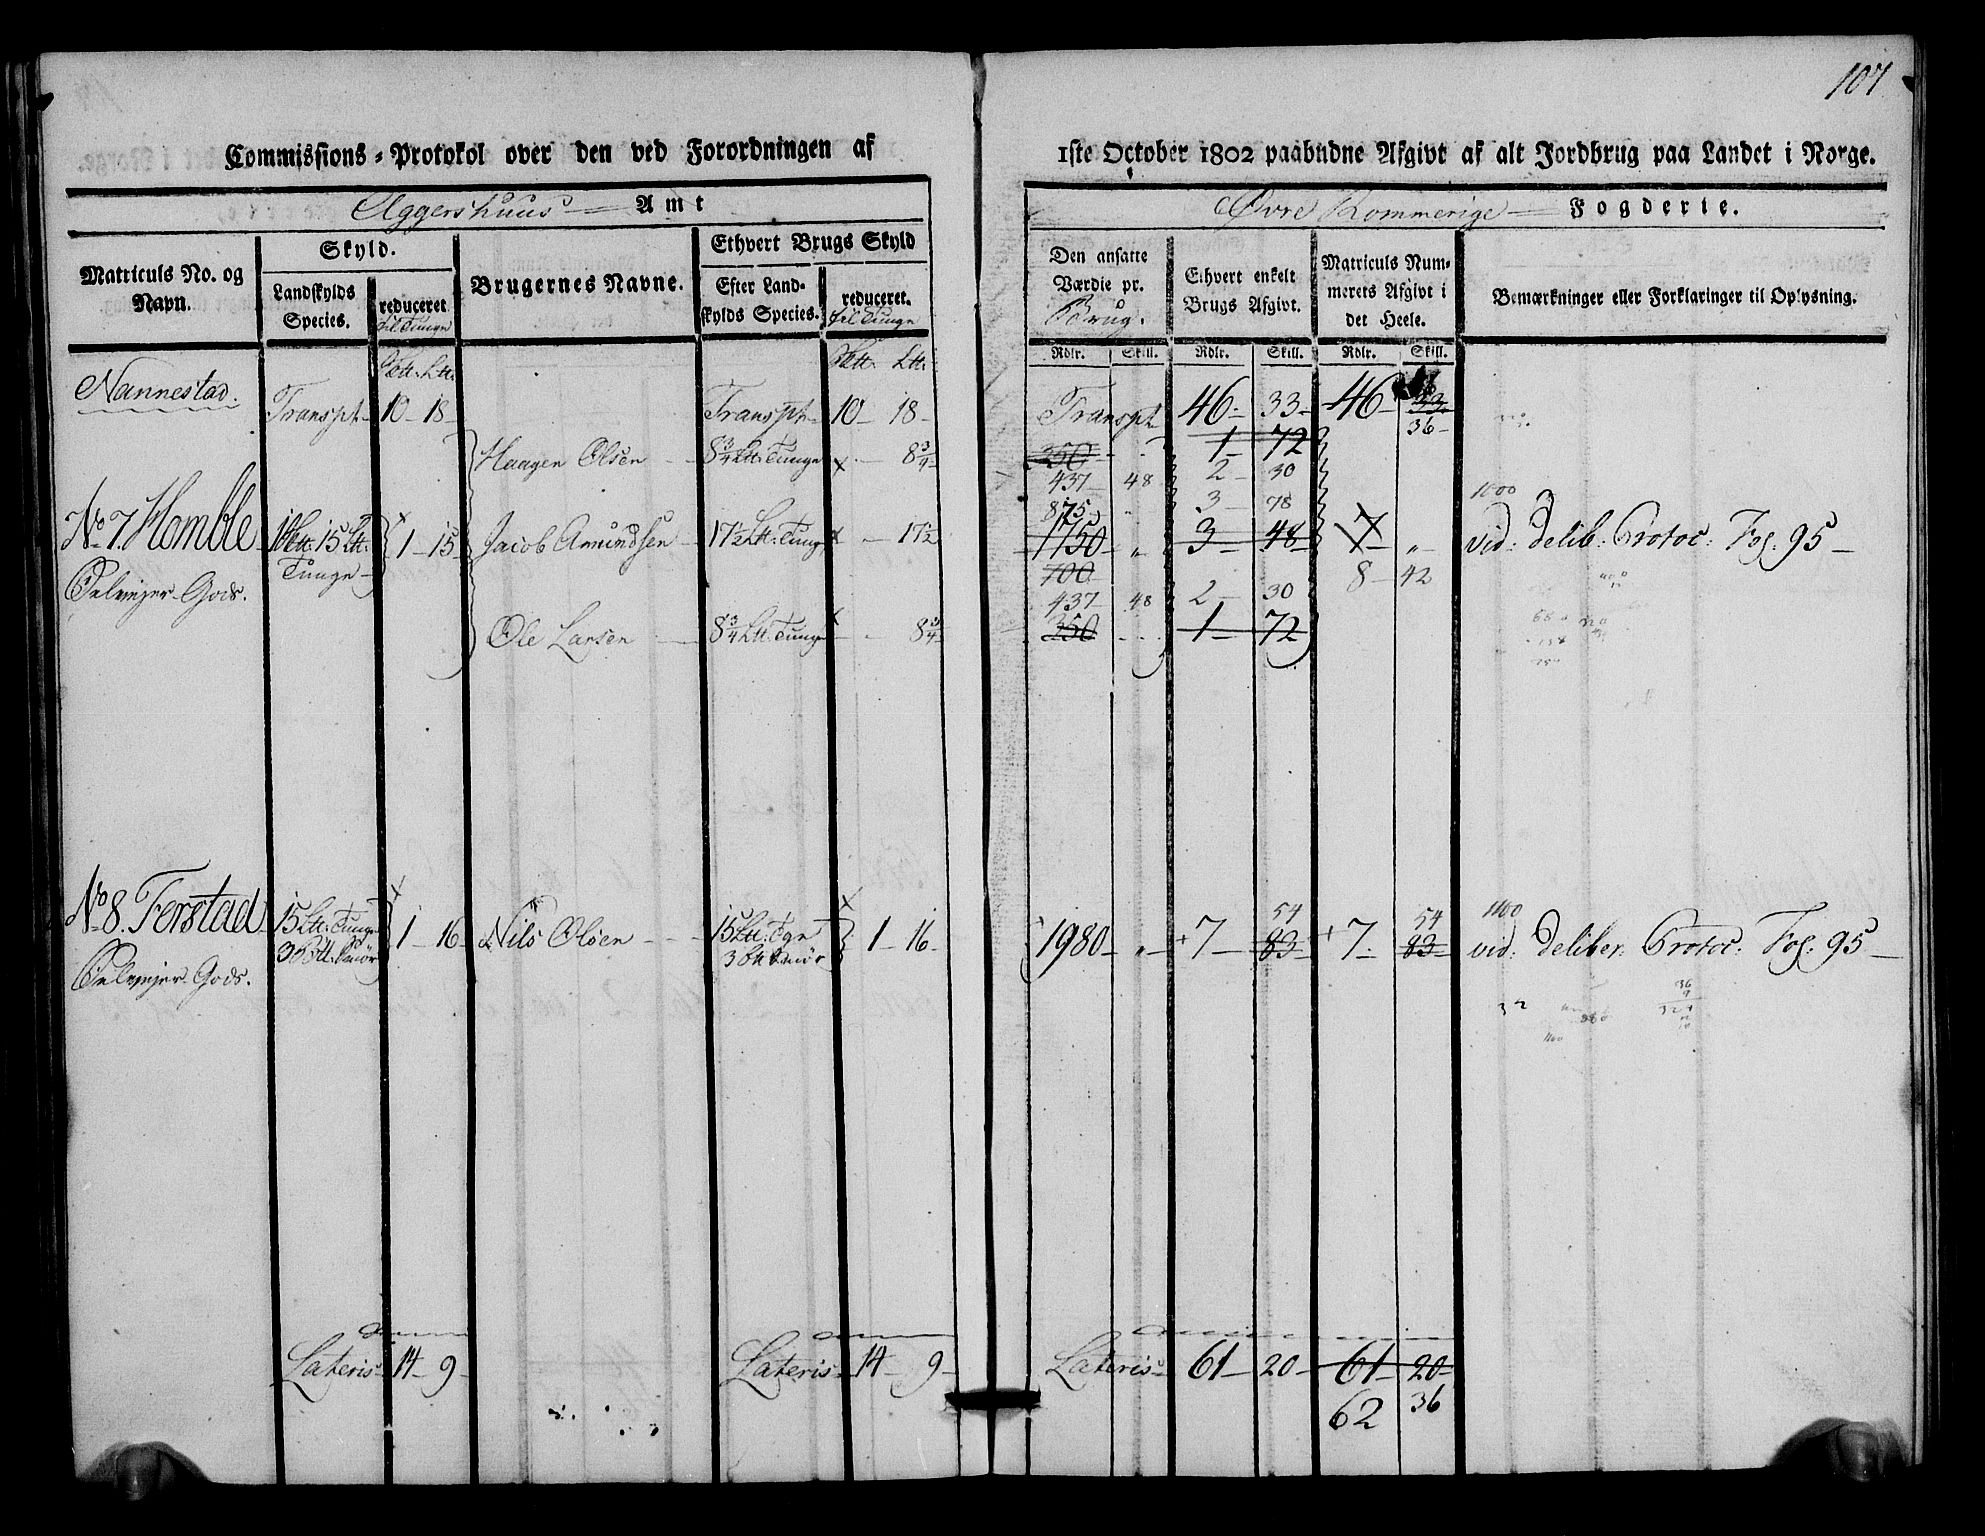 107
Commissions-Protokol over den ved Forordningen af 1ste October 1802 paabudne Afgivt af alt Jordbrug paa Landet i Norge.
Aggershuus Amt
Øvre Rommerige Fogderie.
Matriculs No. og Navn.
Skyld.
Landskylds Species.
reduceret til Tunge
Brugernes Navne.
Ethvert Brugs Skyld
Efter Landskylds Species.
reduceret. til Tunge
Den ansatte Værdie pr. Brug.
Ethvert enkelt Brugs Afgivt.
Matriculs Nummerets Afgivt i det Heele.
Bemærkninger eller Forklaringer til Oplysning.
Rdlr. Skill. Rdlr. Skill. Rdlr. Skill.
Nannestad.
Transpt 10 - 18 - Transpt 10 - 18 - Transpt 46 - 33 - 46 - 33
36 -
Haagen Olsen - 8 3/4 Ltt: Tunge - 8 3/4
350 1 - 72
437 48 2 - 30
1000
875 3 - 78
No 7. Homble 15 Ltt: Tunge - 1 - 15 Jacob Amundsen - 17 1/2 Ltt: Tung - 17 1/2 1750 „ 3 - 48 7 - „ vid: Delib: Protoc: Fol: 95 -
700 8 - 42
Gods.
437 48 2 - 30
Ole Larsen - 8 3/4 Ltt: Tunge - 8 3/4 350 1 - 72
1100
54 54
No 8. Forstad 15 Ltt: Tunge 1 - 16 - Nils Olsen - 15 Ltt: Tgn 1 - 16 - 1980 - „ 7 - 83 - 7 - 83 - vid: Deliber: Protoc: Fol: 95 -
Gods.
Lateris 14 - 9 - Lateris 14 - 9 - Lateris 61 - 20 - 61 - 20 -
62 36